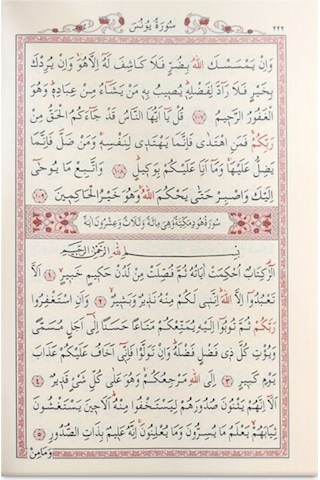 سُورَةُ يُونُسَ ٢٢٢
وَاِنْ يَمْسَسْكَ اللّٰهُ بِضُرٍّ فَلَا كَاشِفَ لَهُٓ اِلَّا هُوَۚ وَاِنْ يُرِدْكَ
بِخَيْرٍ فَلَا رَٓادَّ لِفَضْلِهٖۜ يُصٖيبُ بِهٖ مَنْ يَشَٓاءُ مِنْ عِبَادِهٖۜ وَهُوَ
الْغَفُورُ الرَّحٖيمُ ﴿١٠٧﴾ قُلْ يَٓا اَيُّهَا النَّاسُ قَدْ جَٓاءَكُمُ الْحَقُّ مِنْ
رَبِّكُمْۚ فَمَنِ اهْتَدٰى فَاِنَّمَا يَهْتَدٖي لِنَفْسِهٖۚ وَمَنْ ضَلَّ فَاِنَّمَا
يَضِلُّ عَلَيْهَاۚ وَمَٓا اَنَا۬ عَلَيْكُمْ بِوَكٖيلٍ ﴿١٠٨﴾ وَاتَّبِعْ مَا يُوحٰٓى
اِلَيْكَ وَاصْبِرْ حَتّٰى يَحْكُمَ اللّٰهُۚ وَهُوَ خَيْرُ الْحَاكِمٖينَ ﴿١٠٩﴾
سُورَةُ هُودٍ مَكِّيَّةٌ وَهِيَ مِائَةٌ وَثَلَاثٌ وَعِشْرُونَ اٰيَةً
بِسْمِ اللّٰهِ الرَّحْمٰنِ الرَّحٖيمِ
الٓرٰ۠ كِتَابٌ اُحْكِمَتْ اٰيَاتُهُ ثُمَّ فُصِّلَتْ مِنْ لَدُنْ حَكٖيمٍ خَبٖيرٍۙ ﴿١﴾ اَلَّا
تَعْبُدُٓوا اِلَّا اللّٰهَۜ اِنَّنٖي لَكُمْ مِنْهُ نَذٖيرٌ وَبَشٖيرٌۙ ﴿٢﴾ وَاَنِ اسْتَغْفِرُوا
رَبَّكُمْ ثُمَّ تُوبُٓوا اِلَيْهِ يُمَتِّعْكُمْ مَتَاعًا حَسَنًا اِلٰٓى اَجَلٍ مُسَمًّى
وَيُؤْتِ كُلَّ ذٖي فَضْلٍ فَضْلَهُۜ وَاِنْ تَوَلَّوْا فَاِنّٖٓي اَخَافُ عَلَيْكُمْ عَذَابَ
يَوْمٍ كَبٖيرٍ ﴿٣﴾ اِلَى اللّٰهِ مَرْجِعُكُمْۚ وَهُوَ عَلٰى كُلِّ شَيْءٍ قَدٖيرٌ ﴿٤﴾
اَلَٓا اِنَّهُمْ يَثْنُونَ صُدُورَهُمْ لِيَسْتَخْفُوا مِنْهُۜ اَلَا حٖينَ يَسْتَغْشُونَ
ثِيَابَهُمْۙ يَعْلَمُ مَا يُسِرُّونَ وَمَا يُعْلِنُونَۚ اِنَّهُ عَلٖيمٌ بِذَاتِ الصُّدُورِ ﴿٥﴾
وَمَا مِنْ